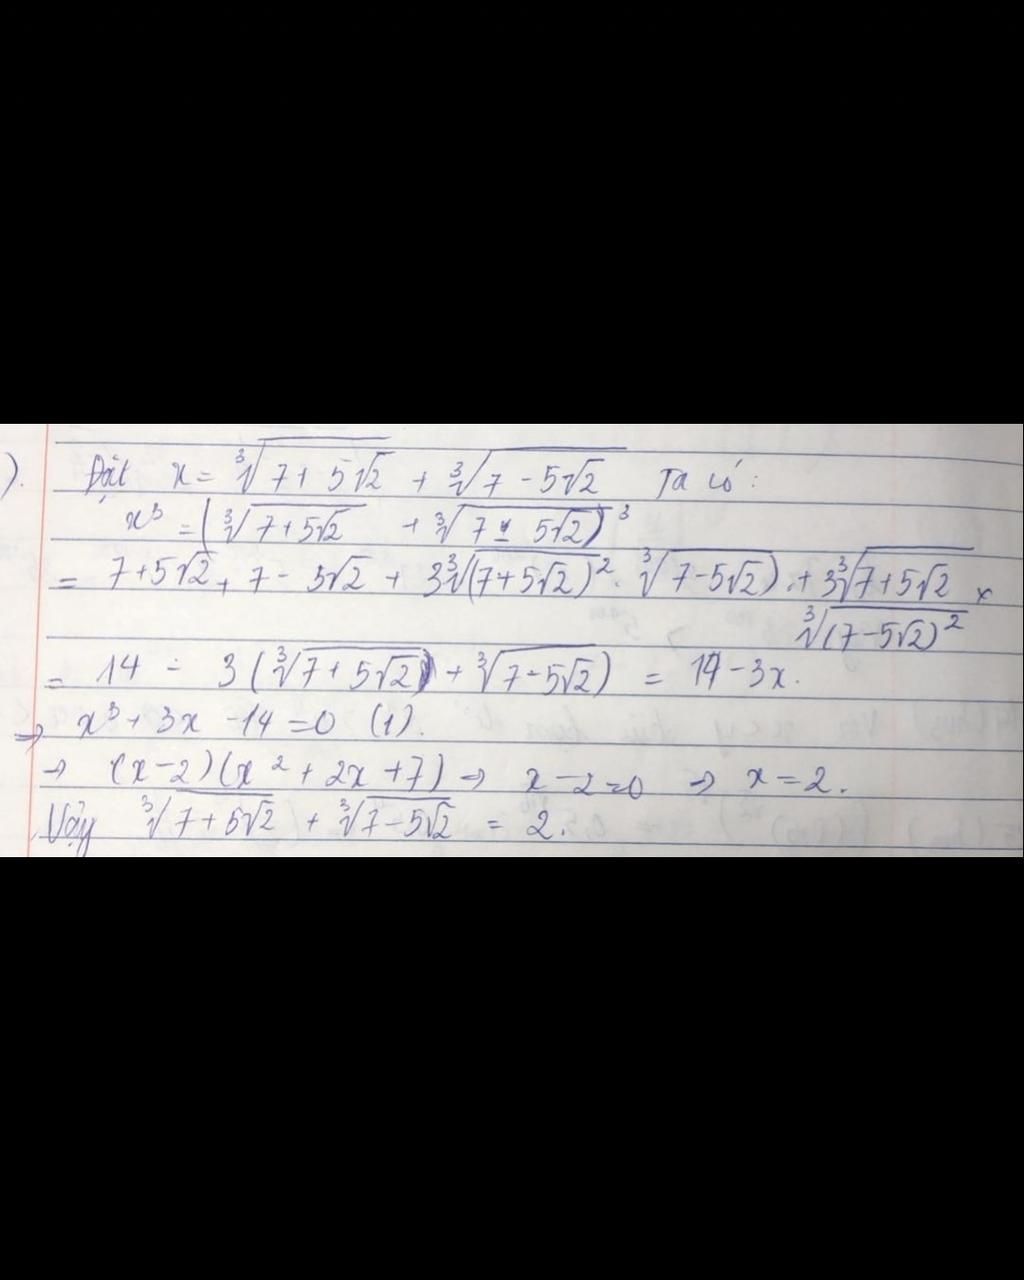 ). Đặt x = ∛(7 + 5√2) + ∛(7 - 5√2) Ta có:
x³ = (∛(7+5√2) + ∛(7 - 5√2))³
= 7+5√2 + 7 - 5√2 + 3∛(7+5√2)² . ∛(7-5√2) . + 3∛(7+5√2) ×
∛(7-5√2)²
= 14 - 3(∛(7+5√2) + ∛(7-5√2)) = 14 - 3x.
⇒ x³ + 3x - 14 = 0 (1).
→ (x-2)(x² + 2x + 7) → x - 2 = 0 ⇒ x = 2.
Vậy ∛(7+5√2) + ∛(7-5√2) = 2.